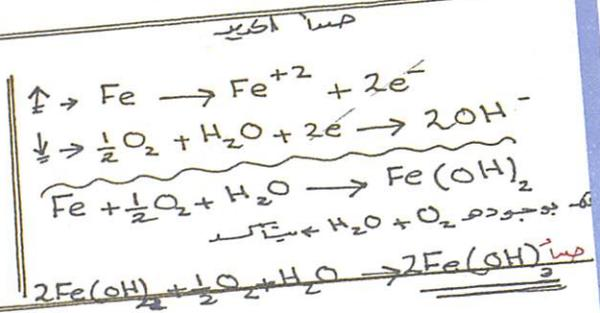 صدأ الحديد
↑ → Fe ⟶ Fe⁺² + 2e⁻
↓ → ½O₂ + H₂O + 2e⁻ ⟶ 2OH⁻
Fe + ½O₂ + H₂O ⟶ Fe(OH)₂
بوجود H₂O + O₂ ← يتأكسد
2Fe(OH)₂ + ½O₂ + H₂O ⟶ 2Fe(OH)₃ صدأ